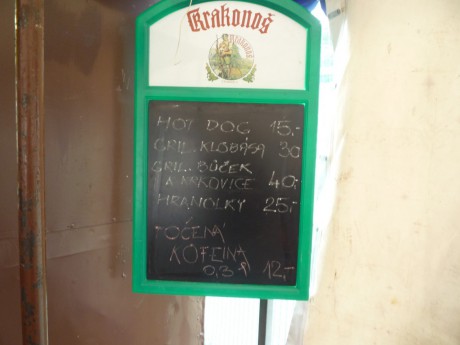 Krakonoš
HOT DOG 15,-
GRIL. KLOBÁSA 30
GRIL. BŮČEK
A KRKOVICE 40,-
HRANOLKY 25,-
TOČENÁ
KOFEINA
0,3 l 12,-